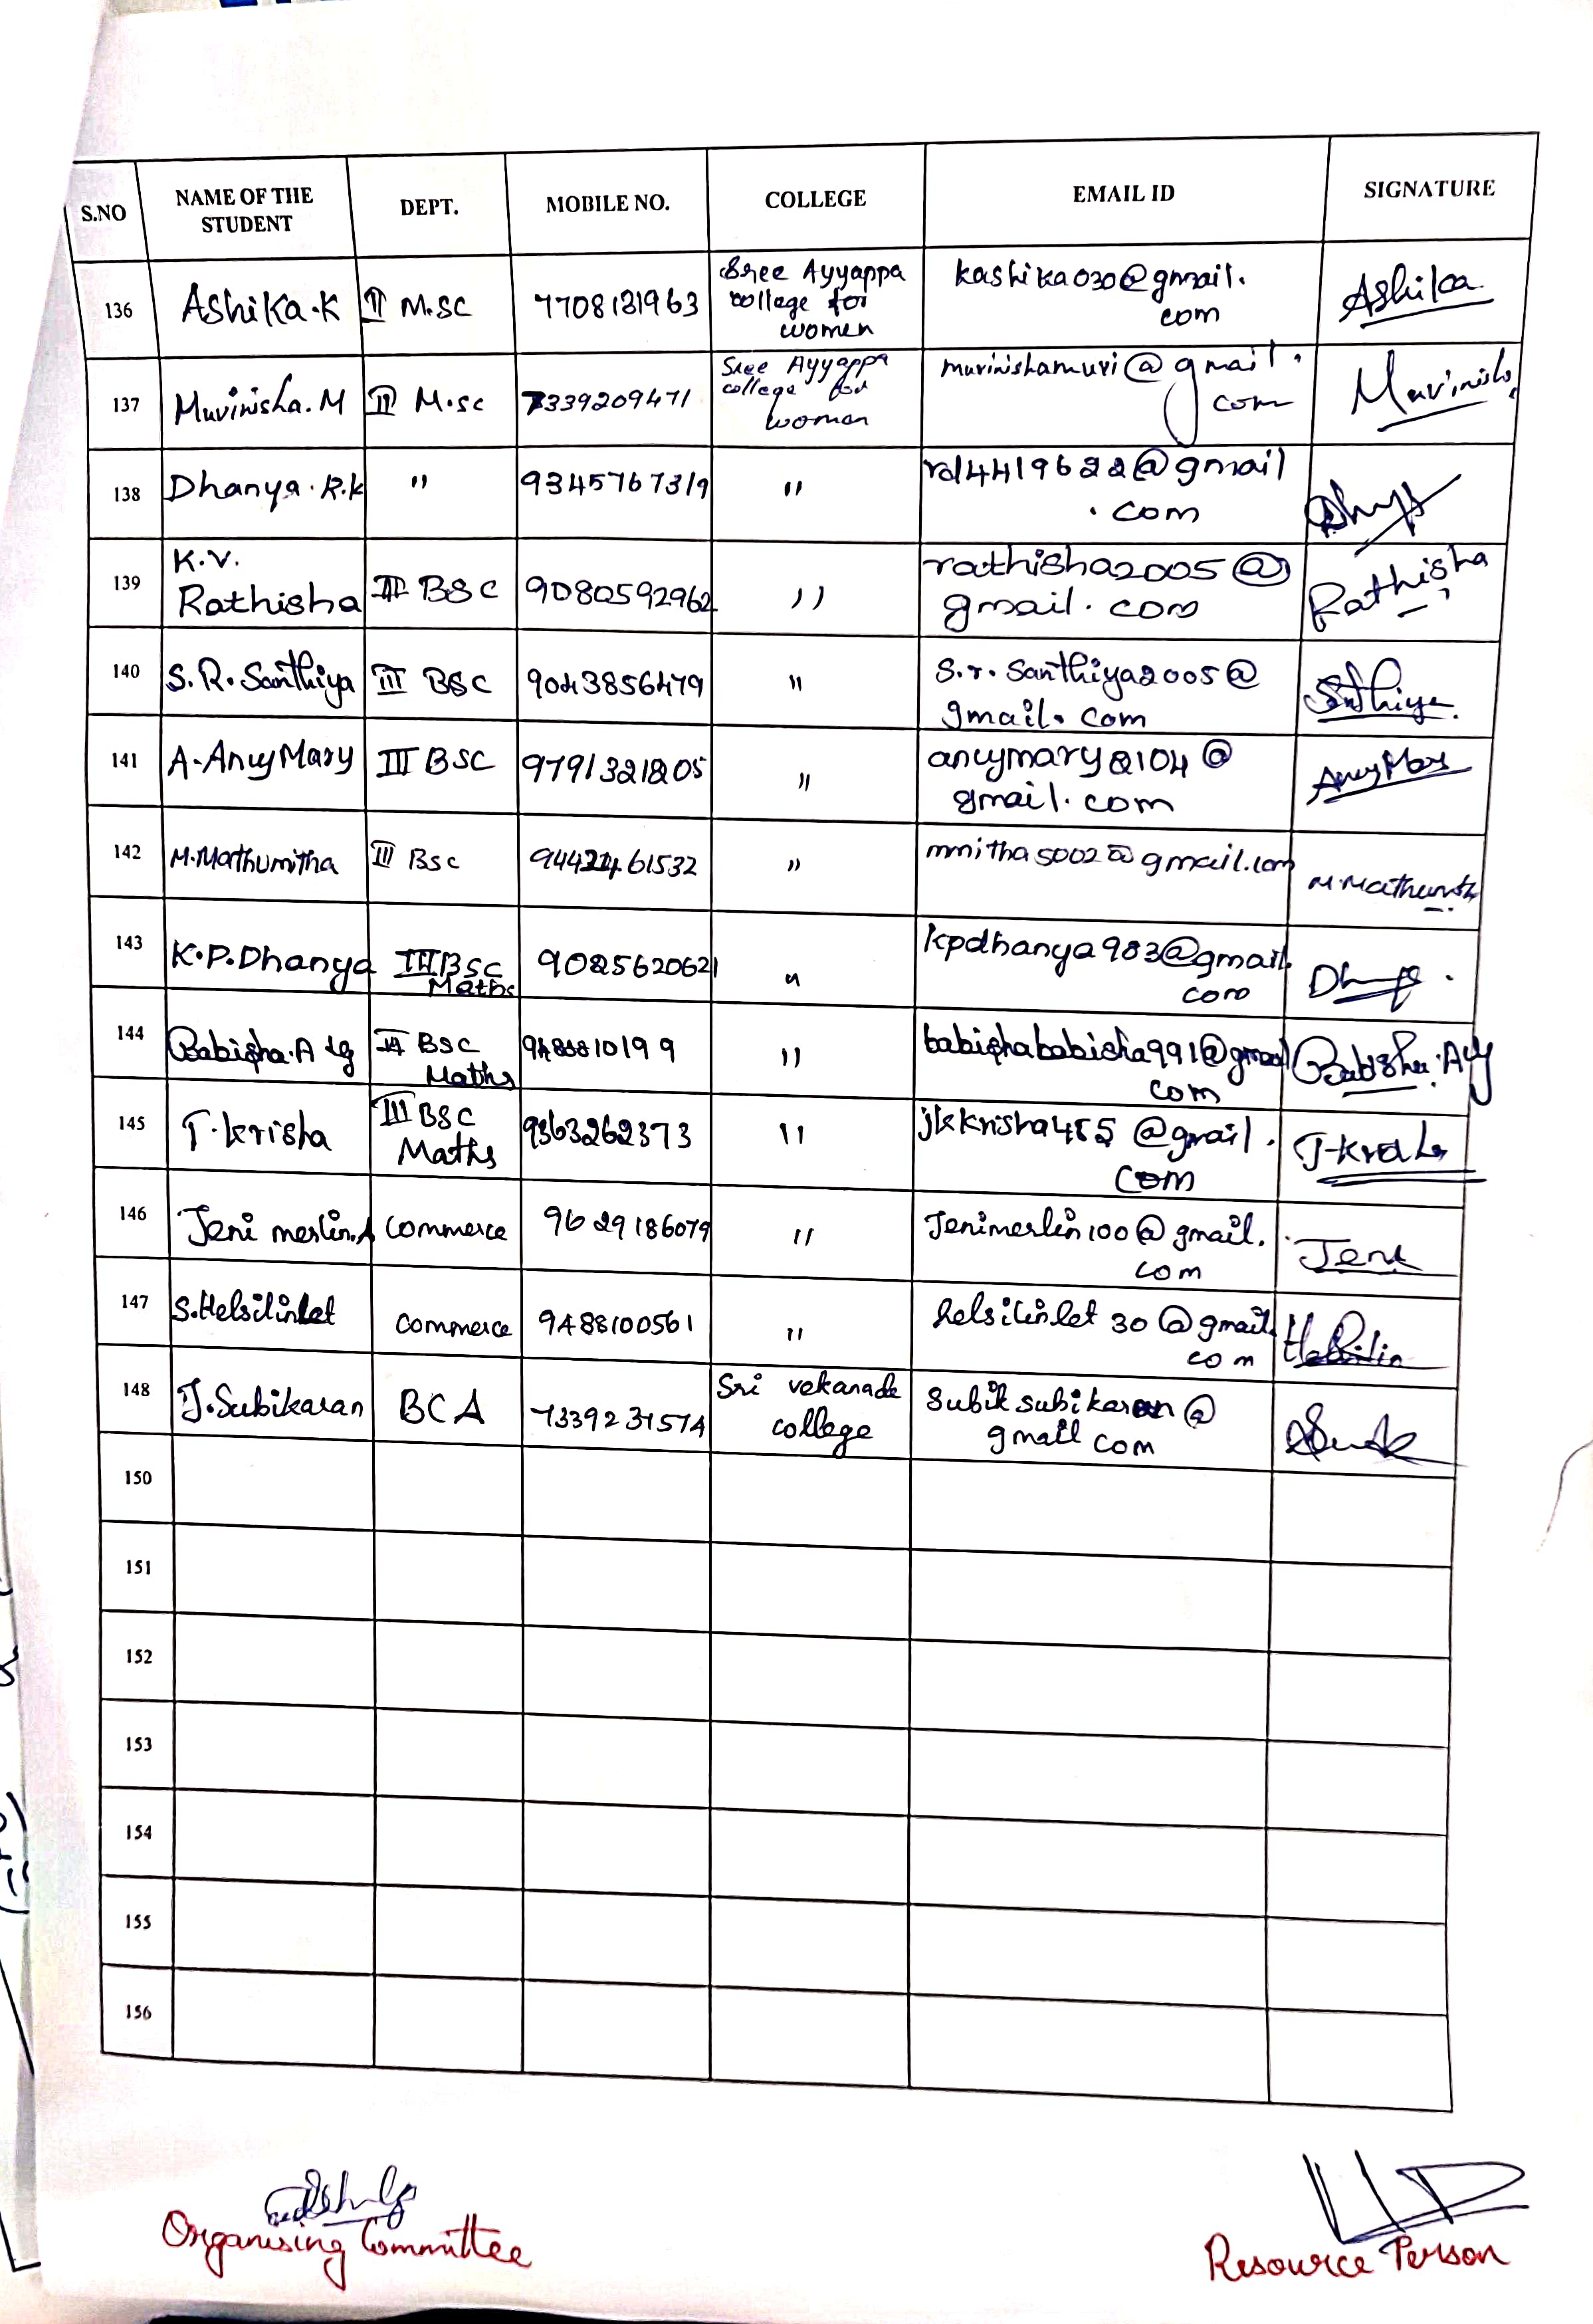 S.NO NAME OF THE STUDENT DEPT. MOBILE NO. COLLEGE EMAIL ID SIGNATURE
136 Ashika.K II M.SC 7708131963 Sree Ayyappa college for women kashika030@gmail.com Ashika
137 Muvinisha.M II M.sc 7339209471 Sree Ayyappa college for women muvinishamuvi@gmail.com Muvinisha
138 Dhanya.R.K " 9345767319 " rd4419622@gmail.com
139 K.V. Rathisha III BSC 9080592962 " rathisha2005@gmail.com Rathisha
140 S.R.Santhiya III BSC 9043856479 " s.r.santhiya2005@gmail.com Santhiya
141 A.AncyMary III BSC 9791321205 " ancymary2104@gmail.com AncyMary
142 M.Mathumitha III Bsc " mmitha5002@gmail.com M.Mathumitha
143 K.P.Dhanya III BSC Maths 9025620621 " kpdhanya983@gmail.com
144 Babisha.A III BSC Maths " babishababisha991@gmail.com
145 T.krisha III BSC Maths 9363262373 " @gmail.com T.Krisha
146 Jeni merlin.A commerce 9629186079 " Jenimerlin100@gmail.com Jeni
147 S.Helsilinlet commerce 9488100561 " helsilinlet30@gmail.com Helsilin
148 J.Subikaran BCA 7339231574 Sri vekanada college Subiksubikaran@gmail com
150
151
152
153
154
155
156
Organising Committee
Resource Person